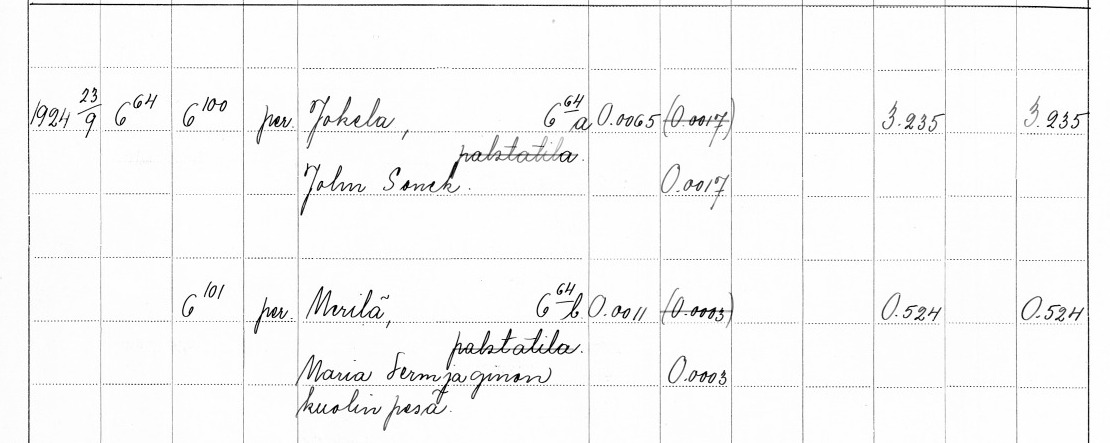 1924 23/9 6^64 6^100 per. Jokela, 6^64/a 0.0065 (0.0017) 3.235 3.235
palstatila.
John Sonck. 0.0017
6^101 per. Merilä, 6^64/b 0.0011 (0.0003) 0.524 0.524
palstatila.
Maria Sermjaginon 0.0003
kuolinpesä.